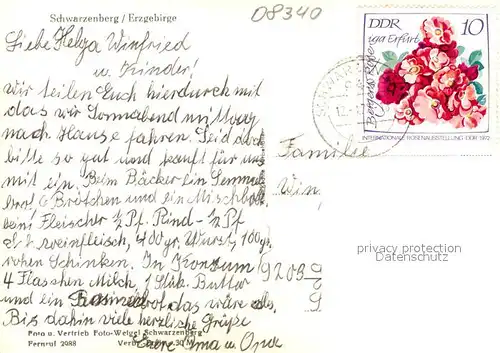 Schwarzenberg / Erzgebirge
08340
Liebe Helga Winfried
u. Kinder!
Wir teilen Euch hierdurch mit
das wir Sonnabend mittag
nach Hause fahren. Seid doch
bitte so gut und kauft für uns
mit ein. Beim Bäcker ein Semmel
brot 6 Brötchen und ein Mischbrot
beim Fleischer ½ Pf. Rind- ½ Pf
Schweinfleisch, 400gr. Wurst, 100gr.
rohen Schinken. In Konsum
4 Flasshen Milch, 1 Stük. Butter
und ein das wäre es.
Bis dahin viele herzliche Grüße
Eure Oma u. Opa
Foto u. Vertrieb Foto-Weigel Schwarzenberg
Fernruf 2988
DDR 10
Bergers Rose
Erfurt
INTERNATIONALE ROSENAUSSTELLUNG DDR 1972
Familie
Win
9203
privacy protection
Datenschutz